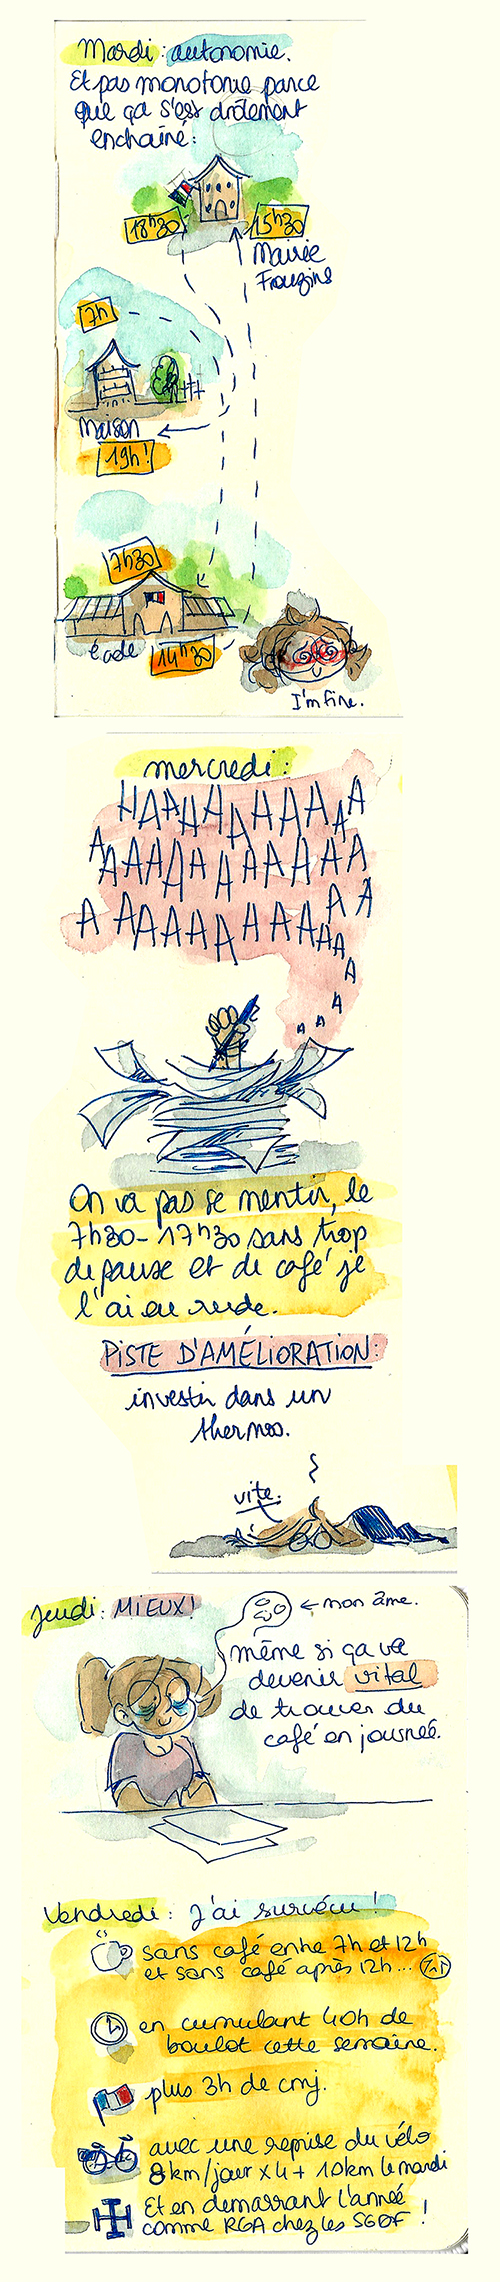 Mardi: autonomie.
Et pas monotonie parce
que ça s'est drôlement
enchaîné:
18h30
15h30
Mairie
Frouzins
7h
Maison
19h!
7h30
école
14h30
I'm fine.
mercredi:
HAAHAAAAAAAA
AAAAAHAAAAAAA
AAAAAAAAAAAAAAA
A
A
A A A
On va pas se mentir, le
7h30-17h30 sans trop
de pause et de café je
l'ai eu rude.
PISTE D'AMÉLIORATION:
investir dans un
thermos.
vite.
Jeudi: MIEUX!
← mon âme.
même si ça va
devenir vital
de trouver du
café en journée.
Vendredi: J'ai survécu!
sans café entre 7h et 12h
et sans café après 12h...
en cumulant 40h de
boulot cette semaine.
plus 3h de cmj.
avec une reprise du vélo
8km/jour x4 + 10km le mardi
Et en demarrant l'année
comme RGA chez les SGDF!